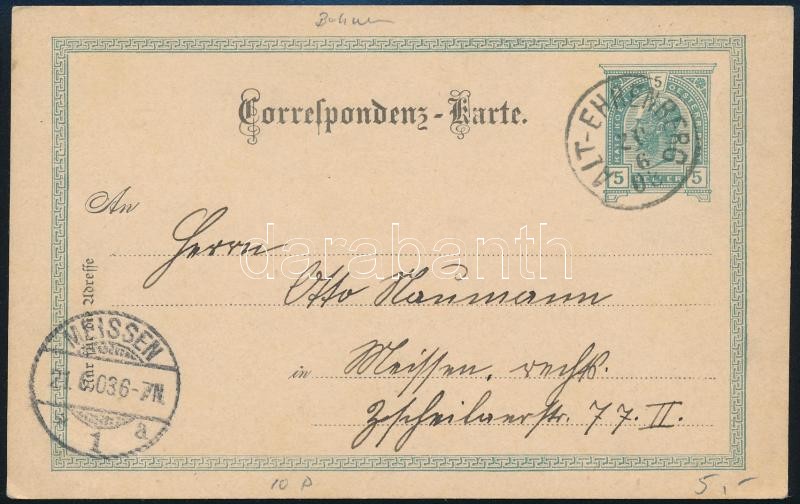 Böhmen
Correspondenz-Karte.
5
5 HELLER 5
ALT-EHRENBERG
20
6
03
An
Herrn
Otto Naumann
in Meissen, rechts.
Zscheilaerstr. 77. II.
Nur für die Adresse
MEISSEN
21.6.03 6-7N.
1 a
darabanth
10 P
5,-